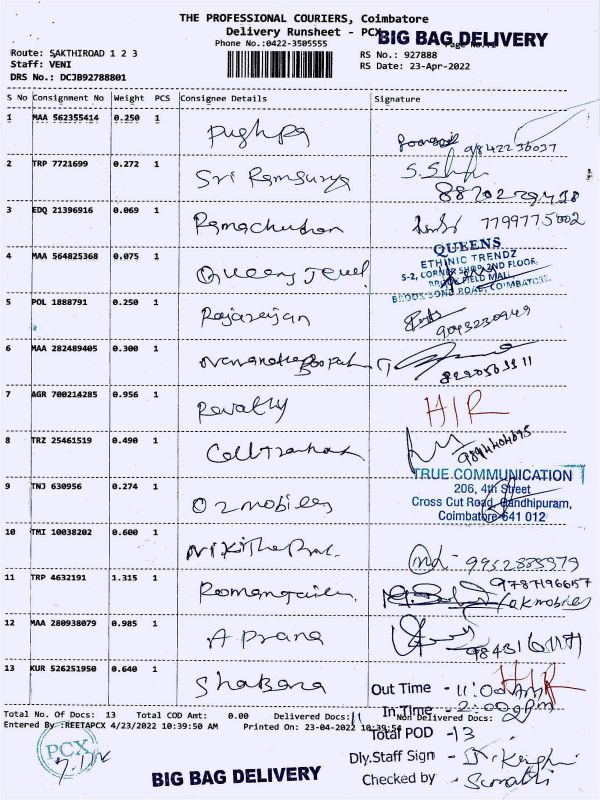 THE PROFESSIONAL COURIERS, Coimbatore
Delivery Runsheet - PCX
BIG BAG DELIVERY
Phone No.:0422-3505555
Route: SAKTHIROAD 1 2 3
Staff: VENI
DRS No.: DCJB92788801
RS No.: 927888
RS Date: 23-Apr-2022
S No Consignment No Weight PCS Consignee Details Signature
1 MAA 562355414 0.250 1 Pushpa
2 TRP 7721699 0.272 1 Sri Ramsurya
3 EDQ 21396916 0.069 1 Ramachudran 7799775002
4 MAA 564825368 0.075 1 Queens Jewel
QUEENS
ETHINIC TRENDZ
S-2, CORNER SHOP, 2ND FLOOR,
BROOK FIELD MALL,
BROOK BOND ROAD, COIMBATORE.
5 POL 1888791 0.250 1 Rajarajan
6 MAA 282489405 0.300 1
7 AGR 700214285 0.956 1 Revathy H/R
8 TRZ 25461519 0.490 1 9894404695
9 TNJ 630956 0.274 1 O2mobiles
TRUE COMMUNICATION
206, 4th Street
Cross Cut Road, Gandhipuram,
Coimbatore-641 012
10 TMI 10038202 0.600 1
11 TRP 4632191 1.315 1 9787196657
12 MAA 280938079 0.985 1 Aprana
13 KUR 526251950 0.640 1 Shabana H/R
Out Time - 11:00 AM
In Time - 2:00 PM
Total No. Of Docs: 13 Total COD Amt: 0.00 Delivered Docs: 11 Non Delivered Docs: 2
Entered By :REETAPCX 4/23/2022 10:39:50 AM Printed On: 23-04-2022 10:39:54
Total POD - 13
PCX
Dly.Staff Sign -
Checked by -
BIG BAG DELIVERY